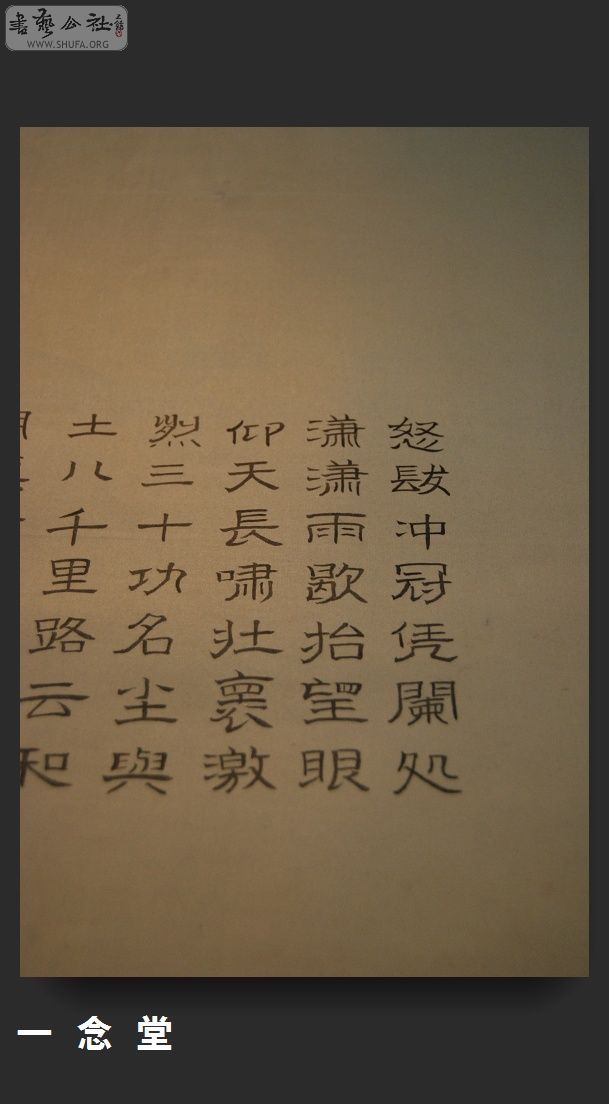 書藝公社
WWW.SHUFA.ORG
怒髮冲冠凭闌处
潇潇雨歇抬望眼
仰天長啸壮褱激
烈三十功名尘與
土八千里路云和
一念堂